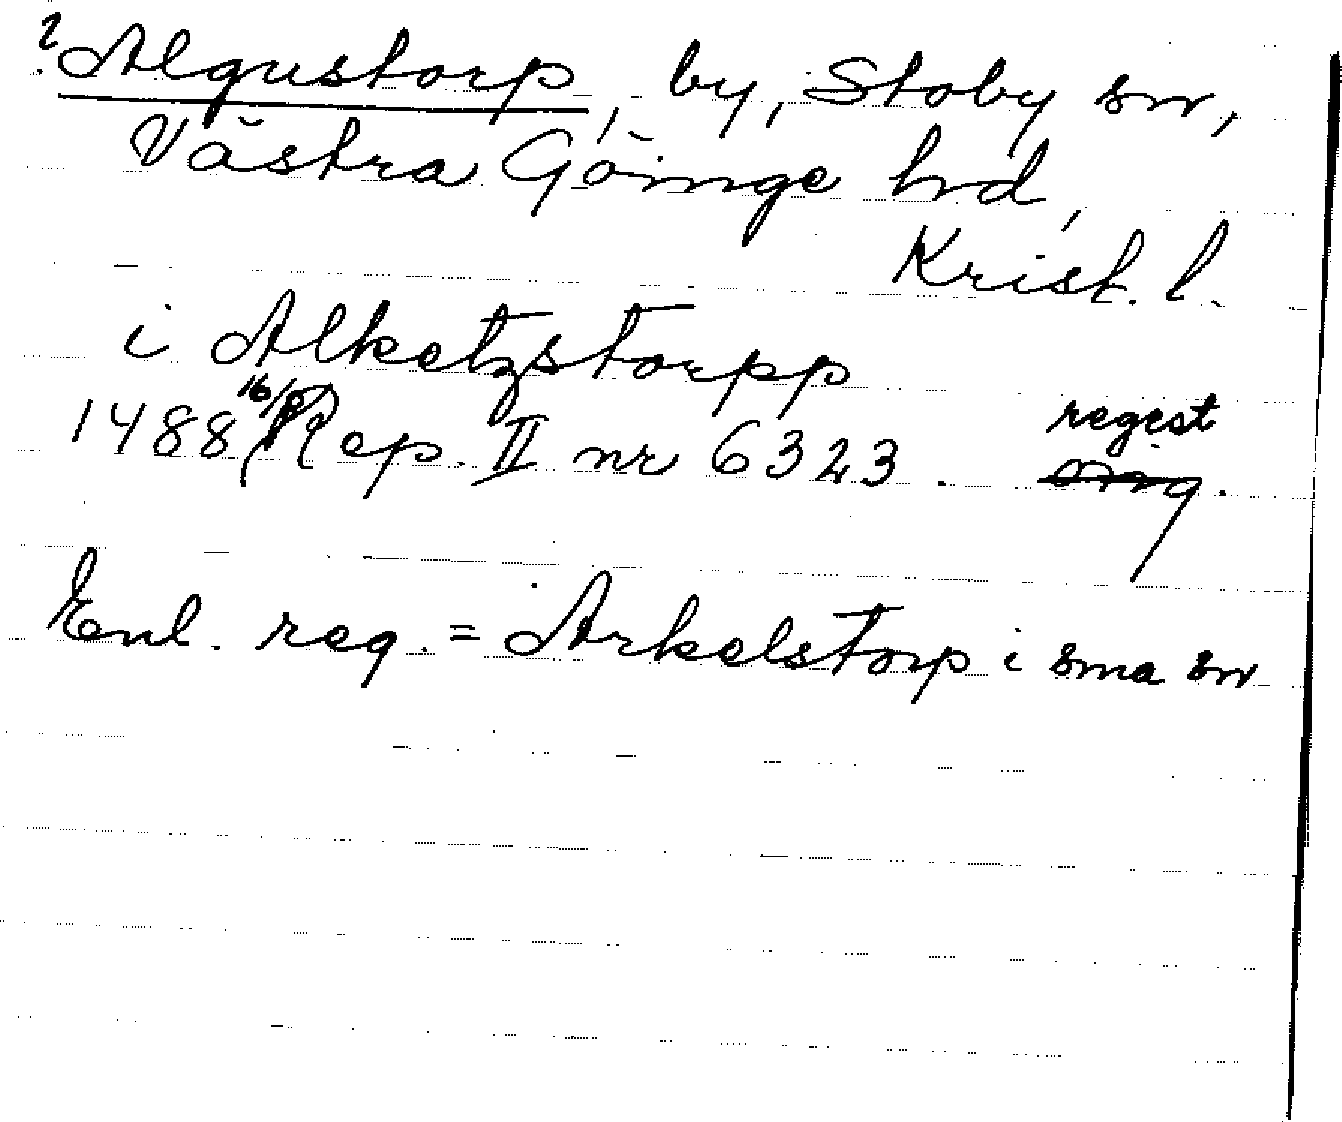 ? Algustorp, by, Stoby sn,
Västra Göinge hd,
Krist. l.
i Alketzstorpp
1488 16/8 Rep. II nr 6323. regest
Enl. reg. = Arkelstorp i sma sn